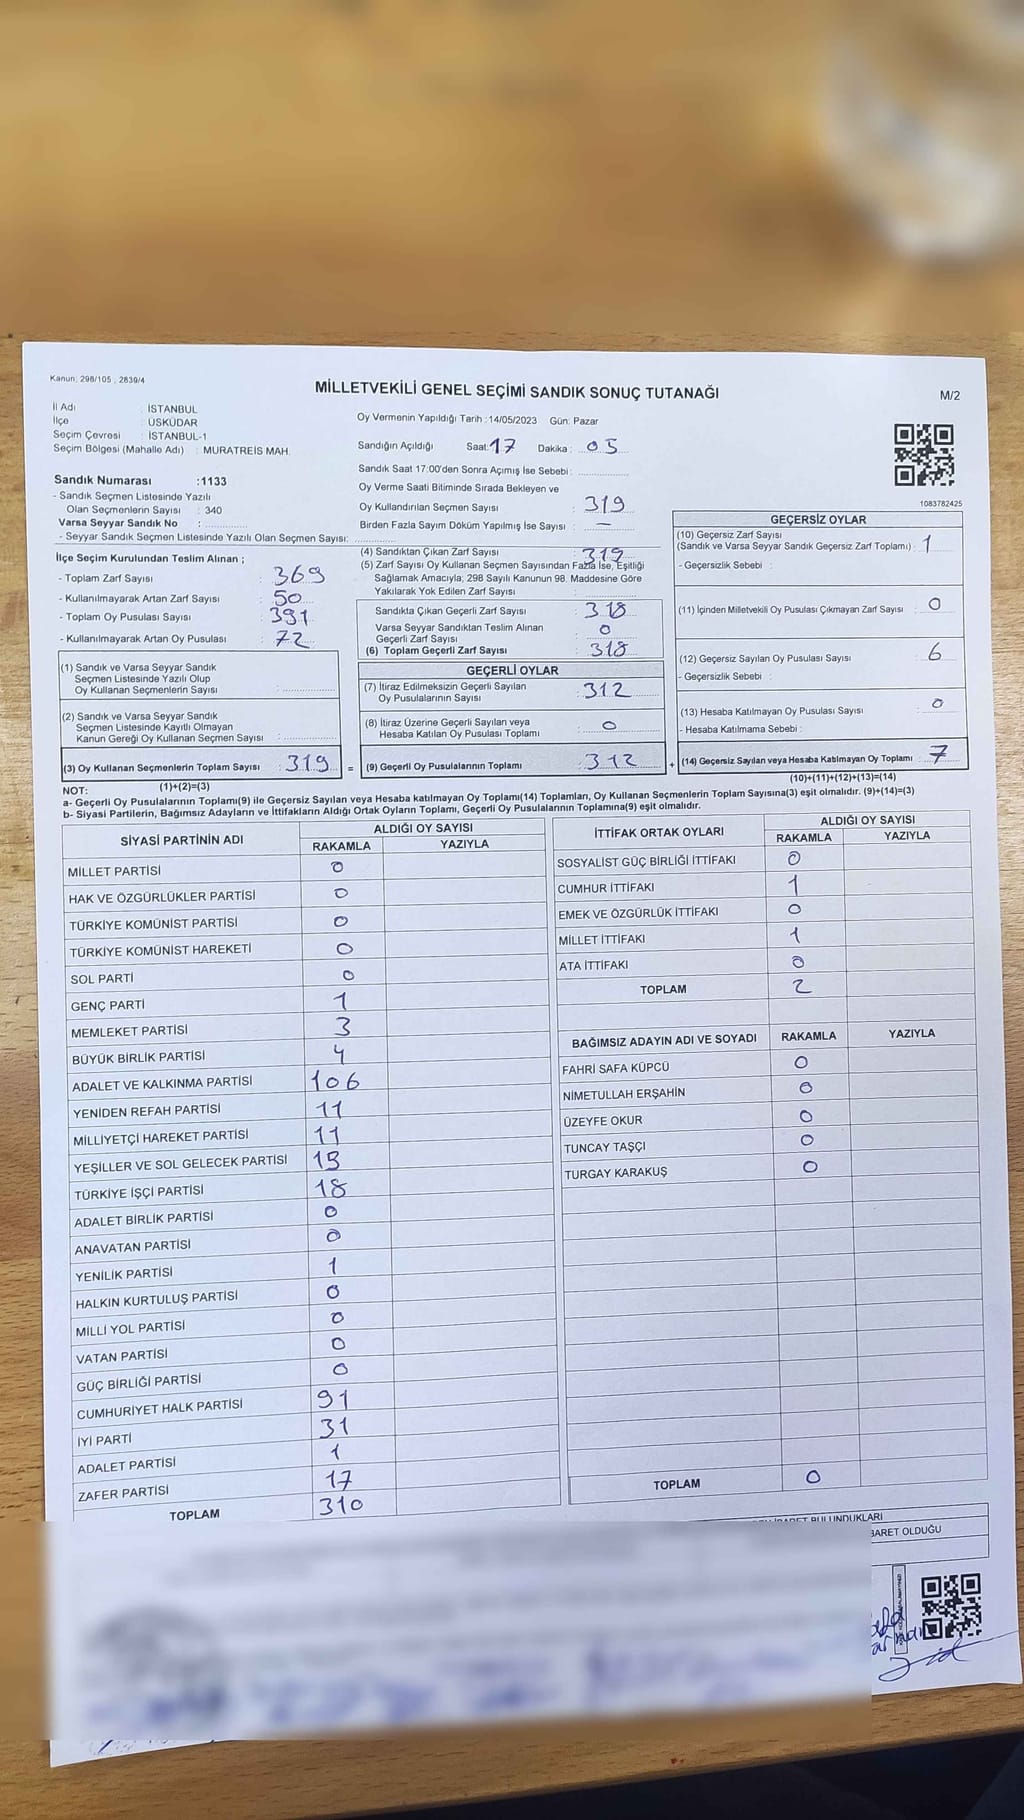 Kanun: 298/105 , 2839/4
MİLLETVEKİLİ GENEL SEÇİMİ SANDIK SONUÇ TUTANAĞI
M/2
İl Adı : İSTANBUL
İlçe : ÜSKÜDAR
Seçim Çevresi : İSTANBUL-1
Seçim Bölgesi (Mahalle Adı) : MURATREİS MAH.
Oy Vermenin Yapıldığı Tarih :14/05/2023 Gün: Pazar
Sandığın Açıldığı Saat: 17 Dakika : 05
Sandık Saat 17:00'den Sonra Açımış İse Sebebi :
Oy Verme Saati Bitiminde Sırada Bekleyen ve
Oy Kullandırılan Seçmen Sayısı : 319
Birden Fazla Sayım Döküm Yapılmış İse Sayısı : —
1083782425
Sandık Numarası :1133
- Sandık Seçmen Listesinde Yazılı
Olan Seçmenlerin Sayısı : 340
Varsa Seyyar Sandık No :
- Seyyar Sandık Seçmen Listesinde Yazılı Olan Seçmen Sayısı:
İlçe Seçim Kurulundan Teslim Alınan ;
- Toplam Zarf Sayısı : 369
- Kullanılmayarak Artan Zarf Sayısı : 50
- Toplam Oy Pusulası Sayısı : 391
- Kullanılmayarak Artan Oy Pusulası : 72
(1) Sandık ve Varsa Seyyar Sandık
Seçmen Listesinde Yazılı Olup
Oy Kullanan Seçmenlerin Sayısı :
(2) Sandık ve Varsa Seyyar Sandık
Seçmen Listesinde Kayıtlı Olmayan
Kanun Gereği Oy Kullanan Seçmen Sayısı :
(3) Oy Kullanan Seçmenlerin Toplam Sayısı : 319 =
(1)+(2)=(3)
(4) Sandıktan Çıkan Zarf Sayısı : 319
(5) Zarf Sayısı Oy Kullanan Seçmen Sayısından Fazla İse, Eşitliği
Sağlamak Amacıyla, 298 Sayılı Kanunun 98. Maddesine Göre
Yakılarak Yok Edilen Zarf Sayısı :
Sandıkta Çıkan Geçerli Zarf Sayısı : 318
Varsa Seyyar Sandıktan Teslim Alınan
Geçerli Zarf Sayısı : 0
(6) Toplam Geçerli Zarf Sayısı : 318
GEÇERLİ OYLAR
(7) İtiraz Edilmeksizin Geçerli Sayılan
Oy Pusulalarının Sayısı : 312
(8) İtiraz Üzerine Geçerli Sayılan veya
Hesaba Katılan Oy Pusulası Toplamı : 0
(9) Geçerli Oy Pusulalarının Toplamı : 312 +
GEÇERSİZ OYLAR
(10) Geçersiz Zarf Sayısı
(Sandık ve Varsa Seyyar Sandık Geçersiz Zarf Toplamı) : 1
- Geçersizlik Sebebi :
(11) İçinden Milletvekili Oy Pusulası Çıkmayan Zarf Sayısı : 0
(12) Geçersiz Sayılan Oy Pusulası Sayısı : 6
- Geçersizlik Sebebi :
(13) Hesaba Katılmayan Oy Pusulası Sayısı : 0
- Hesaba Katılmama Sebebi :
(14) Geçersiz Sayılan veya Hesaba Katılmayan Oy Toplamı : 7
(10)+(11)+(12)+(13)=(14)
NOT:
a- Geçerli Oy Pusulalarının Toplamı(9) ile Geçersiz Sayılan veya Hesaba katılmayan Oy Toplamı(14) Toplamları, Oy Kullanan Seçmenlerin Toplam Sayısına(3) eşit olmalıdır. (9)+(14)=(3)
b- Siyasi Partilerin, Bağımsız Adayların ve İttifakların Aldığı Ortak Oyların Toplamı, Geçerli Oy Pusulalarının Toplamına(9) eşit olmalıdır.
SİYASİ PARTİNİN ADI ALDIĞI OY SAYISI
RAKAMLA YAZIYLA
MİLLET PARTİSİ 0
HAK VE ÖZGÜRLÜKLER PARTİSİ 0
TÜRKİYE KOMÜNİST PARTİSİ 0
TÜRKİYE KOMÜNİST HAREKETİ 0
SOL PARTİ 0
GENÇ PARTİ 1
MEMLEKET PARTİSİ 3
BÜYÜK BİRLİK PARTİSİ 4
ADALET VE KALKINMA PARTİSİ 106
YENİDEN REFAH PARTİSİ 11
MİLLİYETÇİ HAREKET PARTİSİ 11
YEŞİLLER VE SOL GELECEK PARTİSİ 15
TÜRKİYE İŞÇİ PARTİSİ 18
ADALET BİRLİK PARTİSİ 0
ANAVATAN PARTİSİ 0
YENİLİK PARTİSİ 1
HALKIN KURTULUŞ PARTİSİ 0
MİLLİ YOL PARTİSİ 0
VATAN PARTİSİ 0
GÜÇ BİRLİĞİ PARTİSİ 0
CUMHURİYET HALK PARTİSİ 91
İYİ PARTİ 31
ADALET PARTİSİ 1
ZAFER PARTİSİ 17
TOPLAM 310
İTTİFAK ORTAK OYLARI ALDIĞI OY SAYISI
RAKAMLA YAZIYLA
SOSYALİST GÜÇ BİRLİĞİ İTTİFAKI 0
CUMHUR İTTİFAKI 1
EMEK VE ÖZGÜRLÜK İTTİFAKI 0
MİLLET İTTİFAKI 1
ATA İTTİFAKI 0
TOPLAM 2
BAĞIMSIZ ADAYIN ADI VE SOYADI RAKAMLA YAZIYLA
FAHRİ SAFA KÜPCÜ 0
NİMETULLAH ERŞAHİN 0
ÜZEYFE OKUR 0
TUNCAY TAŞÇI 0
TURGAY KARAKUŞ 0
TOPLAM 0
BULUNDUKLARI
OLDUĞU